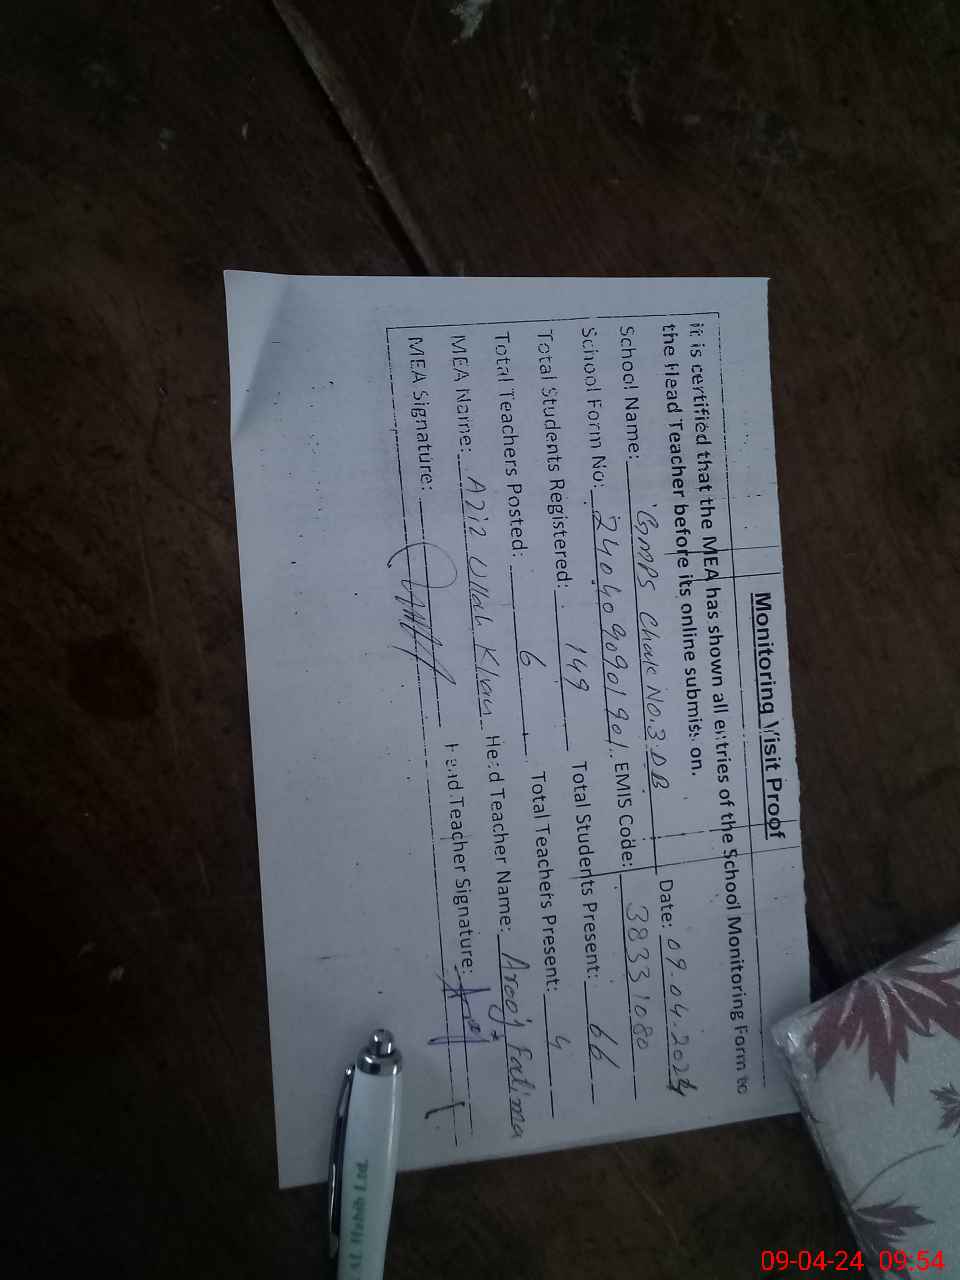 Monitoring Visit Proof
It is certified that the MEA has shown all entries of the School Monitoring Form to
the Head Teacher before its online submission.
School Name: GMPS Chak No.3 DB Date: 09-04-2024
School Form No: 2404090901901 EMIS Code: 38331080
Total Students Registered: 149 Total Students Present: 66
Total Teachers Posted: 6 Total Teachers Present: 4
MEA Name: Aziz Ullah Khan Head Teacher Name: Arooj Fatima
MEA Signature: Head Teacher Signature:
AL Habib
09-04-24 09:54